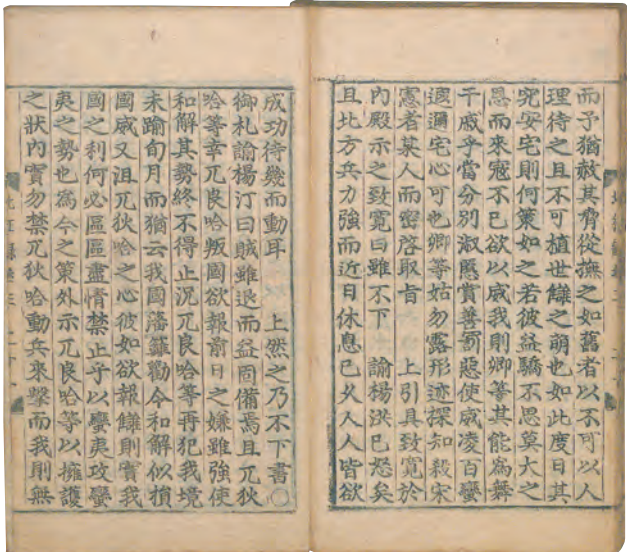 而予猶赦其脅從撫之如舊者以不可以人
理待之且不可植世讎之萌也如此度日其
究安宅則何策如之若彼益驕不思莫大之
恩而來寇不已欲以威我則卿等其能爲舞
干戚乎當分別淑慝賞善罰惡使威凌百蠻
遐邇宅心可也卿等姑勿露形迹探知殺宋
憲者某人而密啓取旨 上引具致寬於
內殿示之致寬曰雖不下 諭楊洪已怒矣
且北方兵力強而近日休息已久人人皆欲
成功待幾而動耳 上然之乃不下書○
御札諭楊汀曰賊雖退而益固備焉且兀狄
哈等幸兀良哈叛國欲報前日之嫌雖強使
和解其勢終不得止況兀良哈等再犯我境
未踰旬月而猶云我國藩籬勸令和解似損
國威又沮兀狄哈之心彼如欲報讎則實我
國之利何必區區盡情禁止乎以蠻夷攻蠻
夷之勢也爲今之策外示兀良哈等以擁護
之狀內實勿禁兀狄哈動兵來擊而我則無